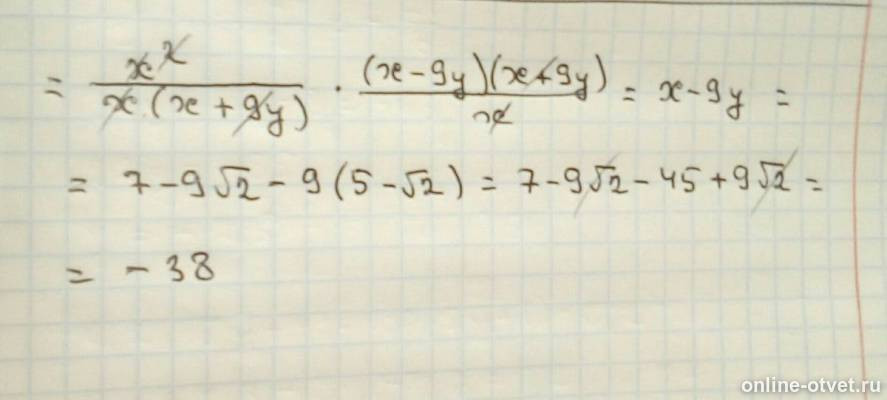 = x² / x(x + 9y) · (x - 9y)(x + 9y) / x = x - 9y =
= 7 - 9√2 - 9(5 - √2) = 7 - 9√2 - 45 + 9√2 =
= - 38
online-otvet.ru